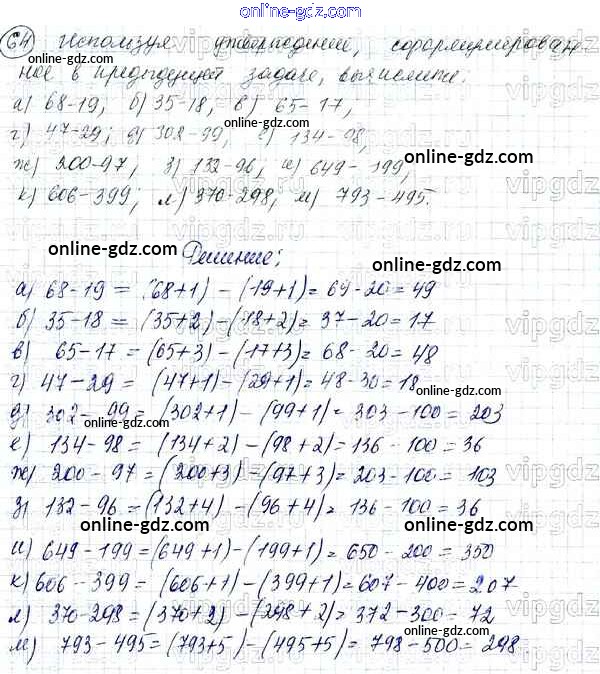 online-gdz.com
64 Используя утверждение, сформулирован-
online-gdz.com
ное в предыдущей задаче, вычислите:
а) 68-19; б) 35-18, в) 65-17,
г) 47-29; д) 302-99, е) 134-98,
online-gdz.com
ж) 200-97, з) 132-96, и) 649-199,
online-gdz.com
к) 606-399; л) 370-298, м) 793-495.
online-gdz.com
Решение:
online-gdz.com
online-gdz.com
а) 68-19 = (68+1) - (19+1) = 69-20 = 49
б) 35-18 = (35+2) - (18+2) = 37-20 = 17
в) 65-17 = (65+3) - (17+3) = 68-20 = 48
г) 47-29 = (47+1) - (29+1) = 48-30 = 18
online-gdz.com
д) 302-99 = (302+1) - (99+1) = 303-100 = 203
е) 134-98 = (134+2) - (98+2) = 136-100 = 36
ж) 200-97 = (200+3) - (97+3) = 203-100 = 103
з) 132-96 = (132+4) - (96+4) = 136-100 = 36
online-gdz.com
online-gdz.com
и) 649-199 = (649+1) - (199+1) = 650-200 = 350
к) 606-399 = (606+1) - (399+1) = 607-400 = 207
л) 370-298 = (370+2) - (298+2) = 372-300 = 72
м) 793-495 = (793+5) - (495+5) = 798-500 = 298
online-gdz.com
online-gdz.com